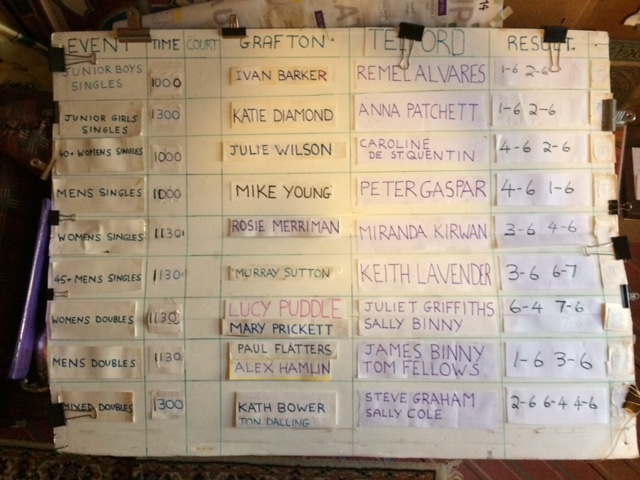 EVENT TIME COURT GRAFTON TELFORD RESULT.
JUNIOR BOYS SINGLES 1000 IVAN BARKER REMEL ALVARES 1-6 2-6
JUNIOR GIRLS SINGLES 1300 KATIE DIAMOND ANNA PATCHETT 1-6 2-6
40+ WOMENS SINGLES 1000 JULIE WILSON CAROLINE DE ST. QUENTIN 4-6 2-6
MENS SINGLES 1000 MIKE YOUNG PETER GASPAR 4-6 1-6
WOMENS SINGLES 1130 ROSIE MERRIMAN MIRANDA KIRWAN 3-6 4-6
45+ MENS SINGLES 1130 MURRAY SUTTON KEITH LAVENDER 3-6 6-7
WOMENS DOUBLES 1130 LUCY PUDDLE MARY PRICKETT JULIET GRIFFITHS SALLY BINNY 6-4 7-6
MENS DOUBLES 1130 PAUL FLATTERS ALEX HAMLIN JAMES BINNY TOM FELLOWS 1-6 3-6
MIXED DOUBLES 1300 KATH BOWER TON DALLING STEVE GRAHAM SALLY COLE 2-6 6-4 4-6